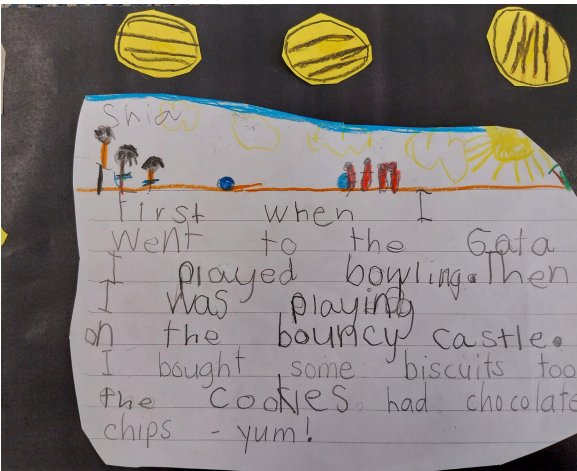 Shia
first when I
Went to the Gata
I played bowling. Then
I was playing
on the bouncy castle.
I bought some biscuits too
the cookies had chocolate
chips - yum!